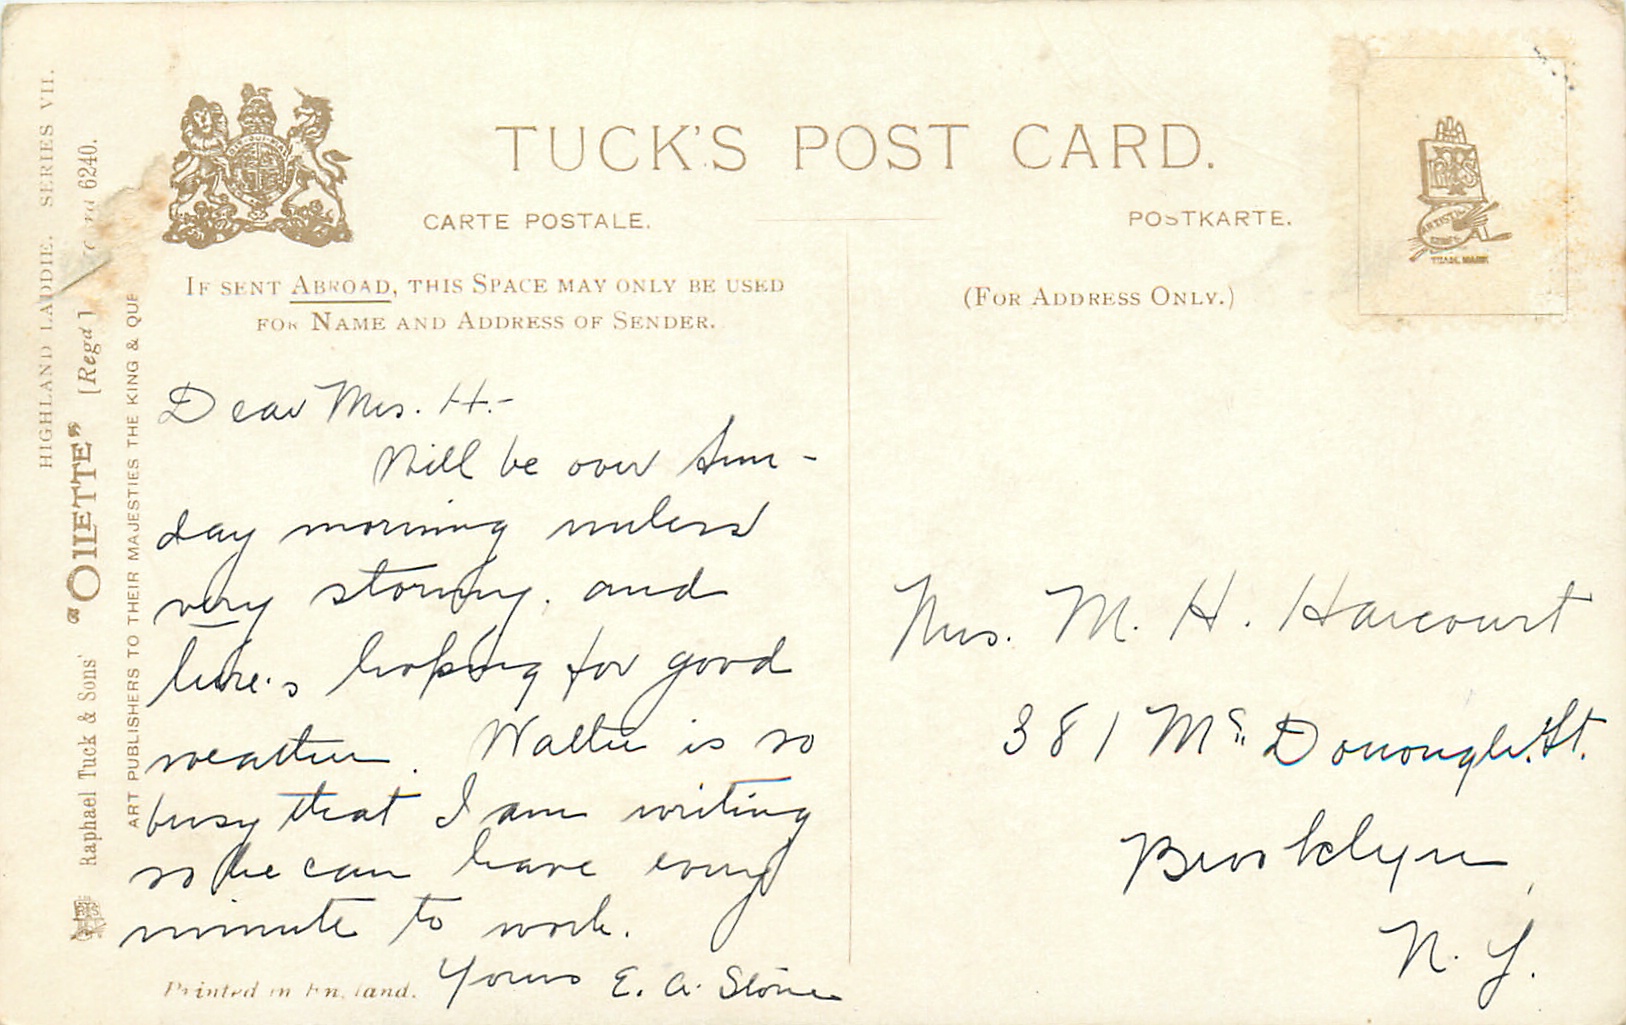 TUCK'S POST CARD.
CARTE POSTALE.
POSTKARTE.
IF SENT ABROAD, THIS SPACE MAY ONLY BE USED
FOR NAME AND ADDRESS OF SENDER.
(FOR ADDRESS ONLY.)
HIGHLAND LADDIE. SERIES VII.
Raphael Tuck & Sons' "OILETTE" [Regd] 6240.
ART PUBLISHERS TO THEIR MAJESTIES THE KING & QUE
ARTISTIC
SERIES
TRADE MARK
Dear Mrs. H.-
Will be over Sun-
day morning unless
very stormy, and
here's hoping for good
weather. Walter is so
busy that I am writing
so he can have every
minute to work.
Yours E. A. Stone
Printed in England.
Mrs. M. H. Harcourt
381 Mc Donough St.
Brooklyn,
N. Y.